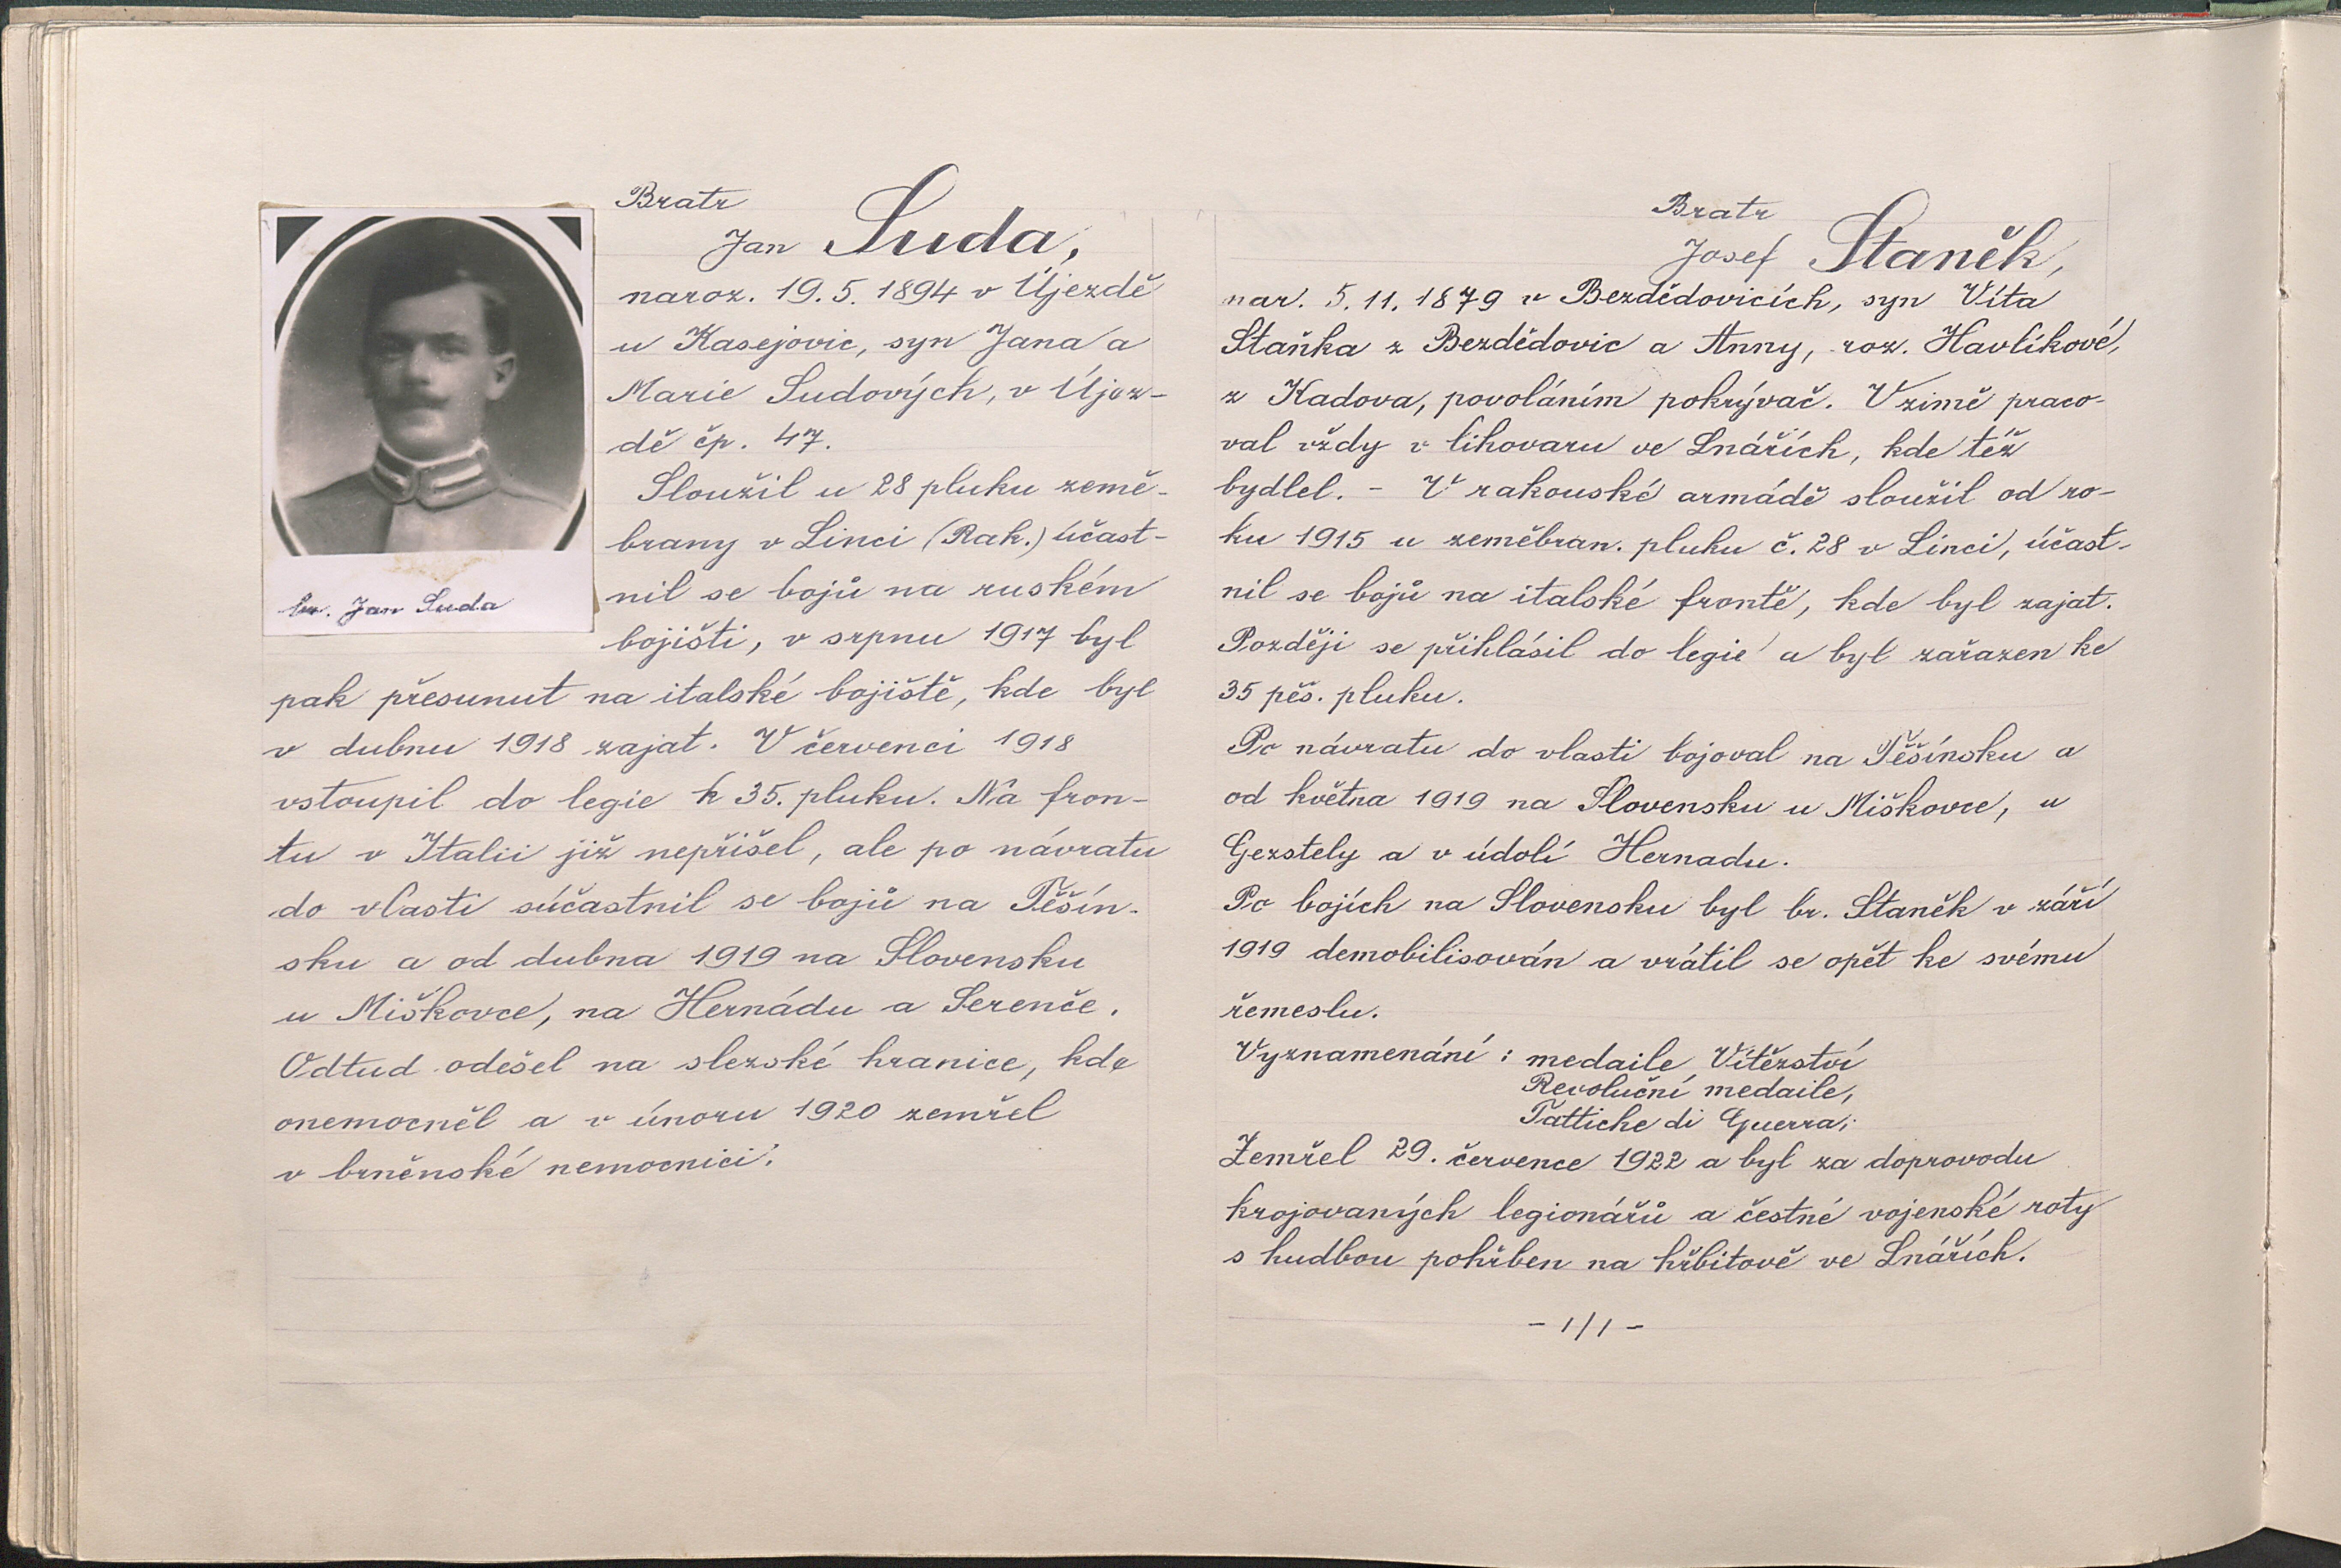 Bratr
Jan Suda,
naroz. 19. 5. 1894 v Újezdě
u Kasejovic, syn Jana a
Marie Sudových, v Újez-
dě čp. 47.
Sloužil u 28 pluku země-
brany v Linci (Rak.) účast-
nil se bojů na ruském
bojišti, v srpnu 1917 byl
pak přesunut na italské bojiště, kde byl
v dubnu 1918 zajat. V červenci 1918
vstoupil do legie k 35. pluku. Na fron-
tu v Italii již nepřišel, ale po návratu
do vlasti súčastnil se bojů na Těšín-
sku a od dubna 1919 na Slovensku
u Miškovce, na Hernádu a Serenče.
Odtud odešel na slezské hranice, kde
onemocněl a v únoru 1920 zemřel
v brněnské nemocnici.
br. Jan Suda
Bratr
Josef Staněk,
nar. 5. 11. 1879 v Bezdědovicích, syn Víta
Staňka z Bezdědovic a Anny, roz. Havlíkové,
z Kadova, povoláním pokrývač. V zimě praco-
val vždy v lihovaru ve Lnářích, kde též
bydlel. - V rakouské armádě sloužil od ro-
ku 1915 u zeměbran. pluku č. 28 v Linci, účast-
nil se bojů na italské frontě, kde byl zajat.
Později se přihlásil do legie a byl zařazen ke
35 pěš. pluku.
Po návratu do vlasti bojoval na Těšínsku a
od května 1919 na Slovensku u Miškovce, u
Gezstely a v údolí Hernadu.
Po bojích na Slovensku byl br. Staněk v září
1919 demobilisován a vrátil se opět ke svému
řemeslu.
Vyznamenání: medaile Vítězství
Revoluční medaile,
Fattiche di Guerra;
Zemřel 29. července 1922 a byl za doprovodu
krojovaných legionářů a čestné vojenské roty
s hudbou pohřben na hřbitově ve Lnářích.
- 1/1 -